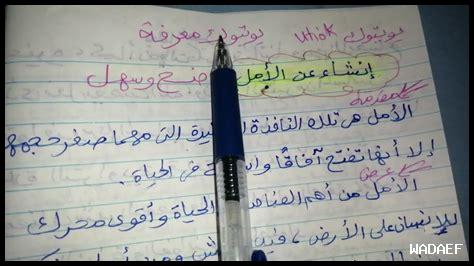 يوتيوب utiok يوتيوك معرفة
إنشاء عن الأمل واضح وسهل
مقدمة
الأمل هي تلك النافذة الصغيرة التي مهما صغر حجمها
إلا أنها تفتح آفاقًا في الحياة.
عرض
الأمل من أهم العناصر الحياة وأقوى محرك
للإنسان على الأرض، فهو
WADAEF